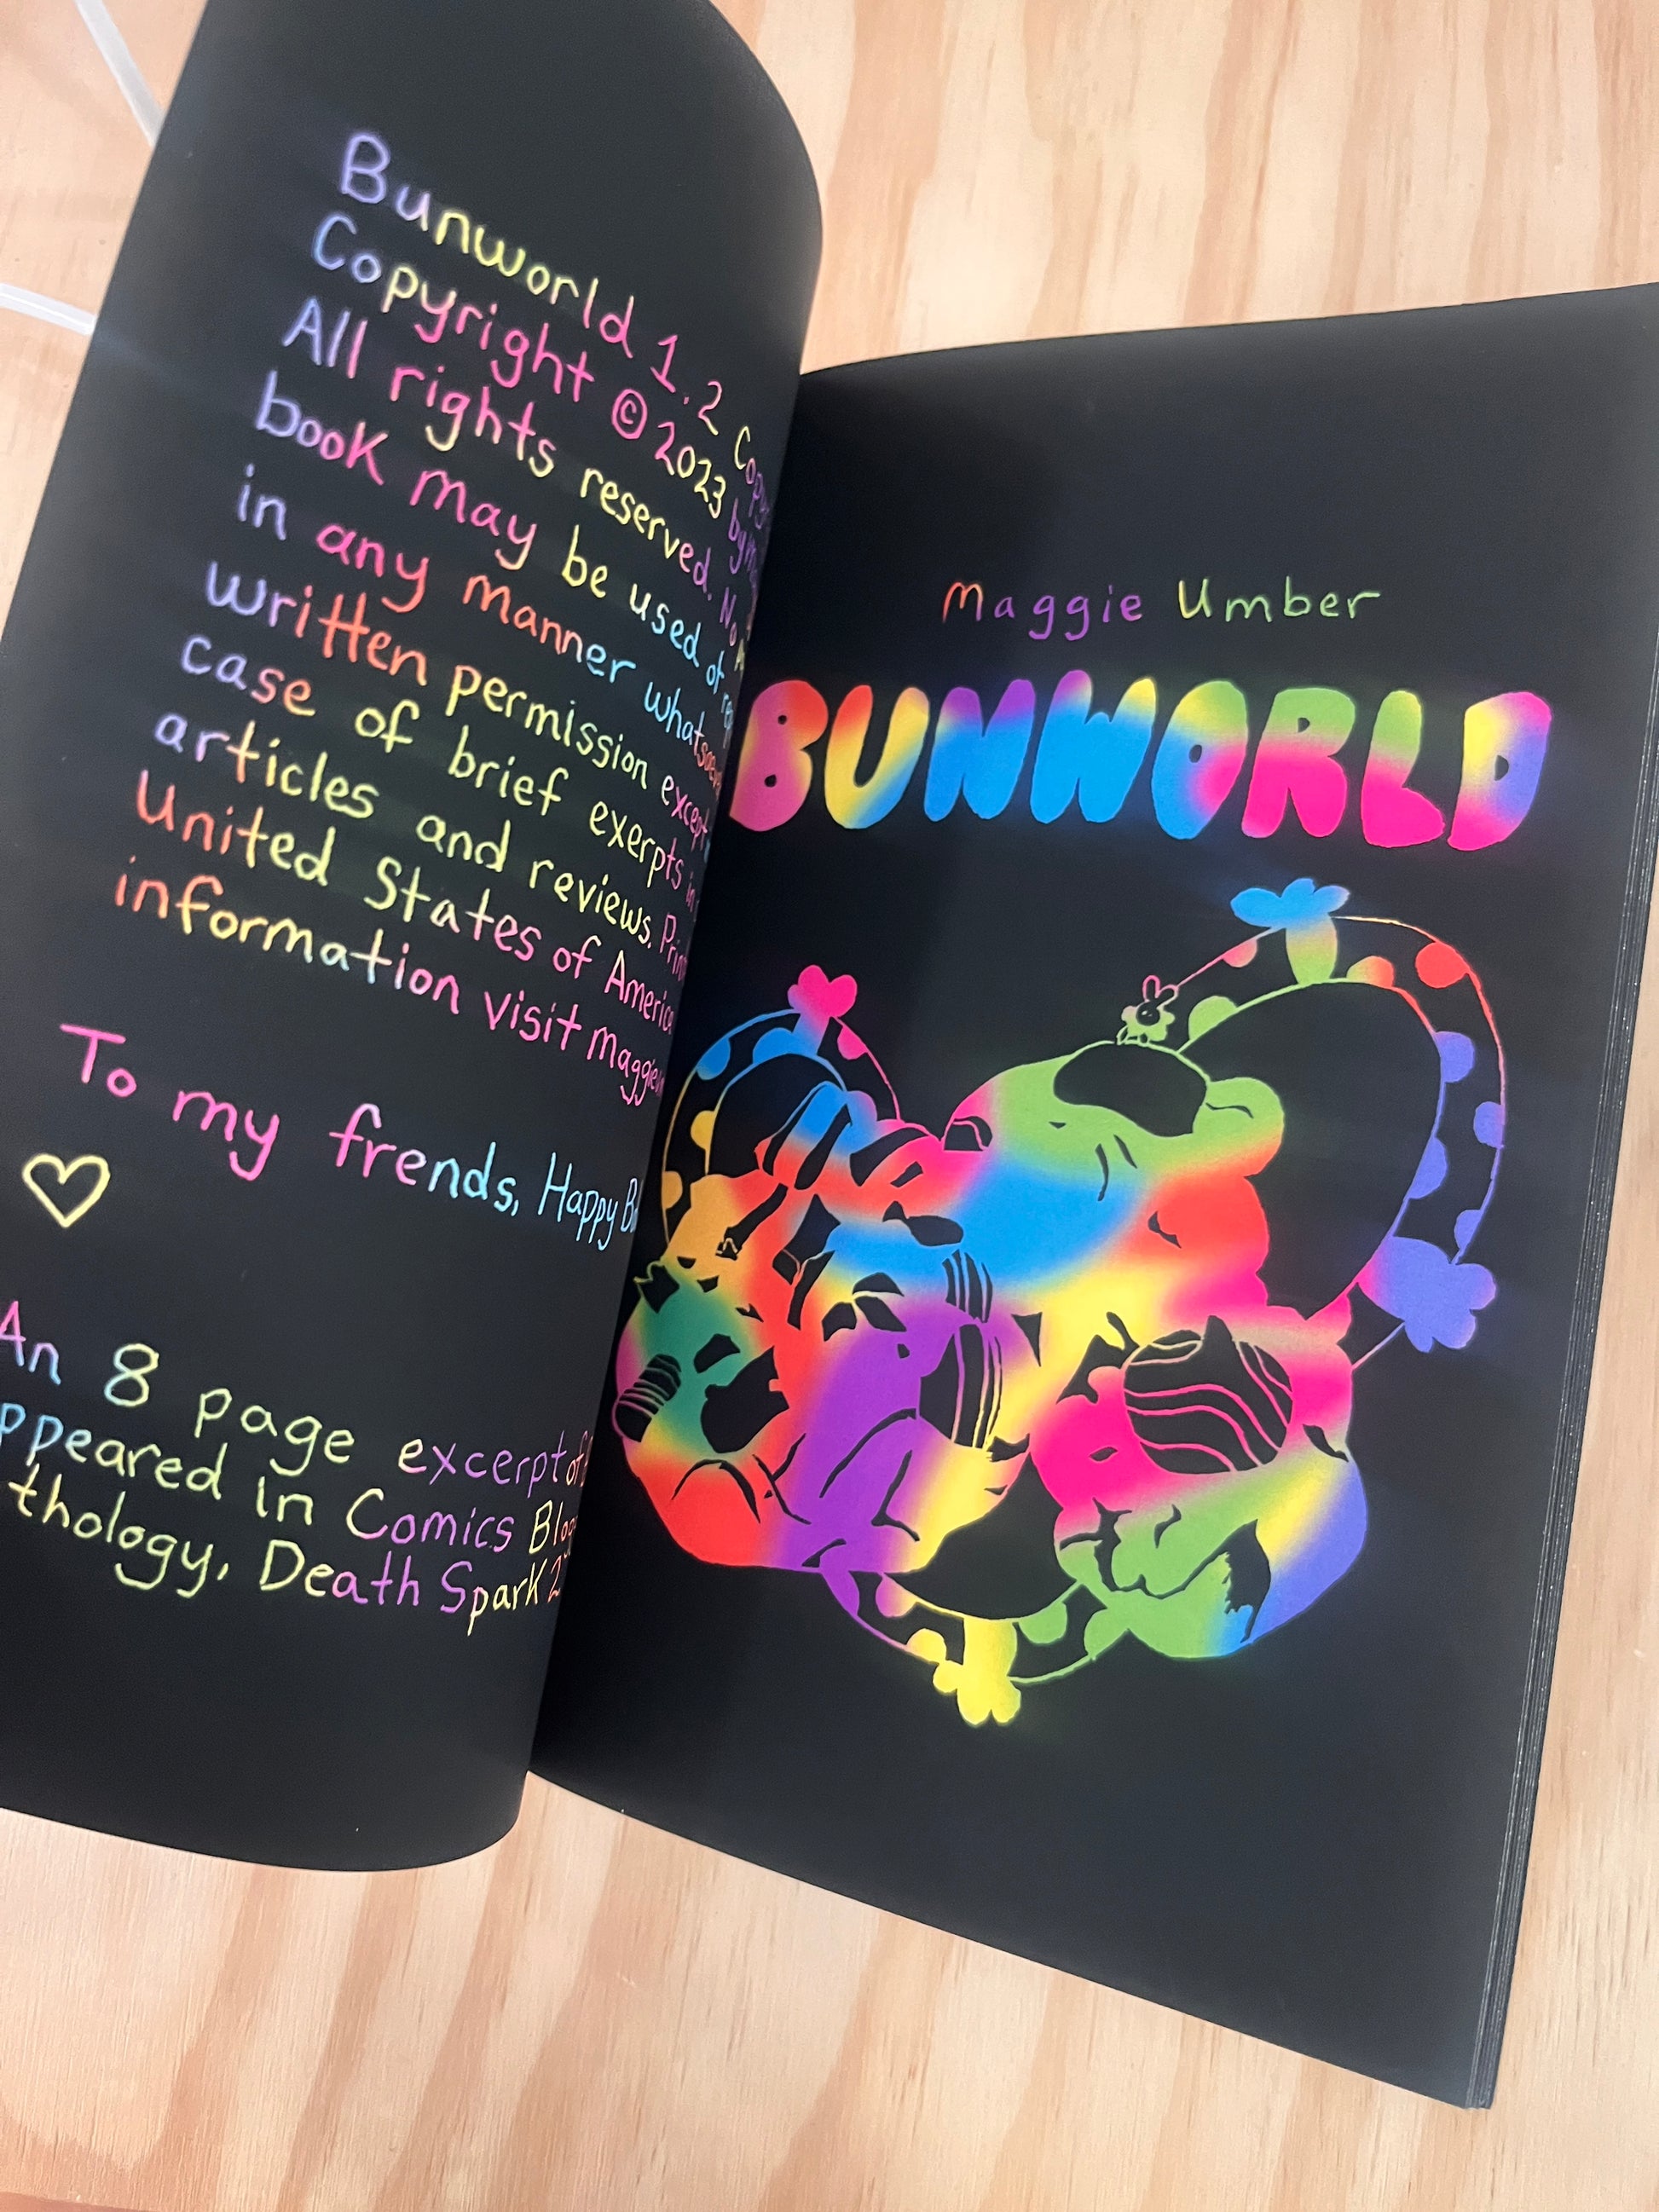 Bunworld 1.2
Copyright © 2023
All rights reserved. No
book may be used or
in any manner
written permission except
case of brief exerpts in
articles and reviews.
United States of America
information visit
To my frends, Happy
An 8 page excerpt of
appeared in Comics
thology, Death Spark
Maggie Umber
BUNWORLD